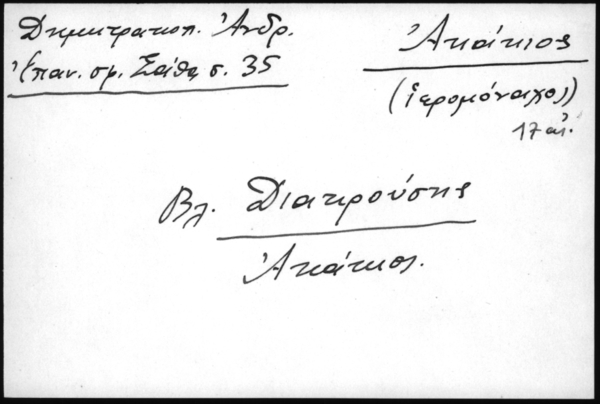 Δημητρακοπ. Ἀνδρ.
Ἐπαν. σφ. Σάθα, σ. 35
Ἀκάκιος
(ἱερομόναχος)
17 αἰ.
Βλ. Διακρούσης
Ἀκάκιος.